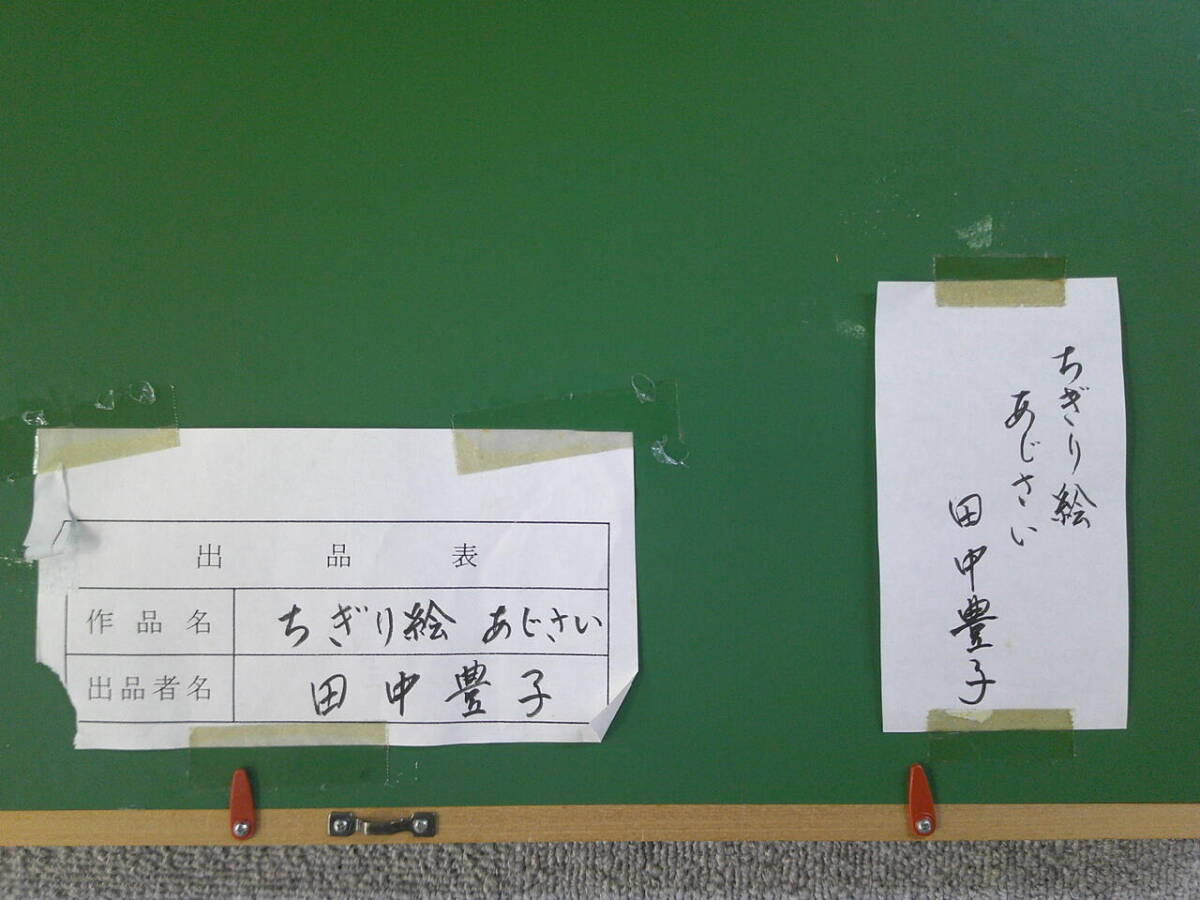 出品表
作品名 ちぎり絵 あじさい
出品者名 田中豊子
ちぎり絵
あじさい
田中豊子